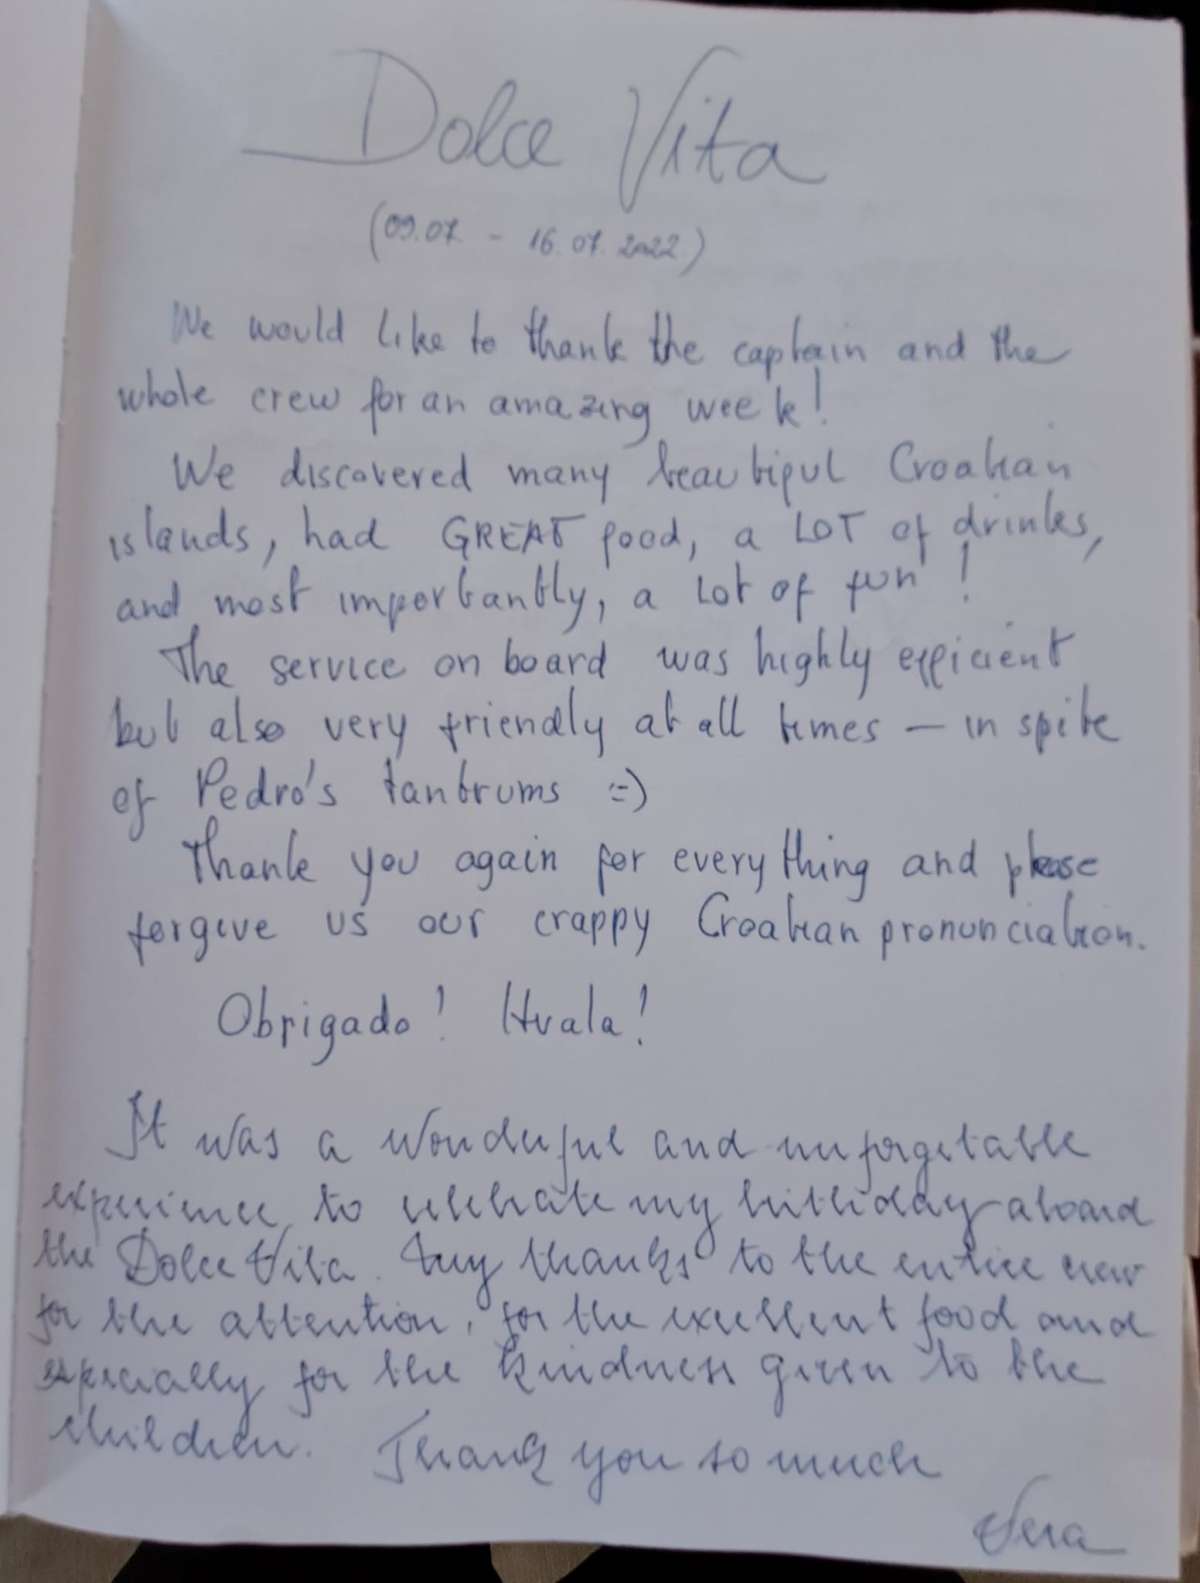 Dolce Vita
(09.07. - 16.07.2022.)
We would like to thank the captain and the
whole crew for an amazing week!
We discovered many beautiful Croatian
islands, had GREAT food, a LOT of drinks,
and most importantly, a lot of fun!
The service on board was highly efficient
but also very friendly at all times — in spite
of Pedro's tantrums :=)
Thank you again for everything and please
forgive us our crappy Croatian pronunciation.
Obrigado! Hvala!
It was a wonderful and unforgetable
experience to celebrate my birthday aboard
the Dolce Vita. thanks to the entire crew
for the attention, for the excellent food and
especially for the kindness given to the
children. Thank you so much
Vera